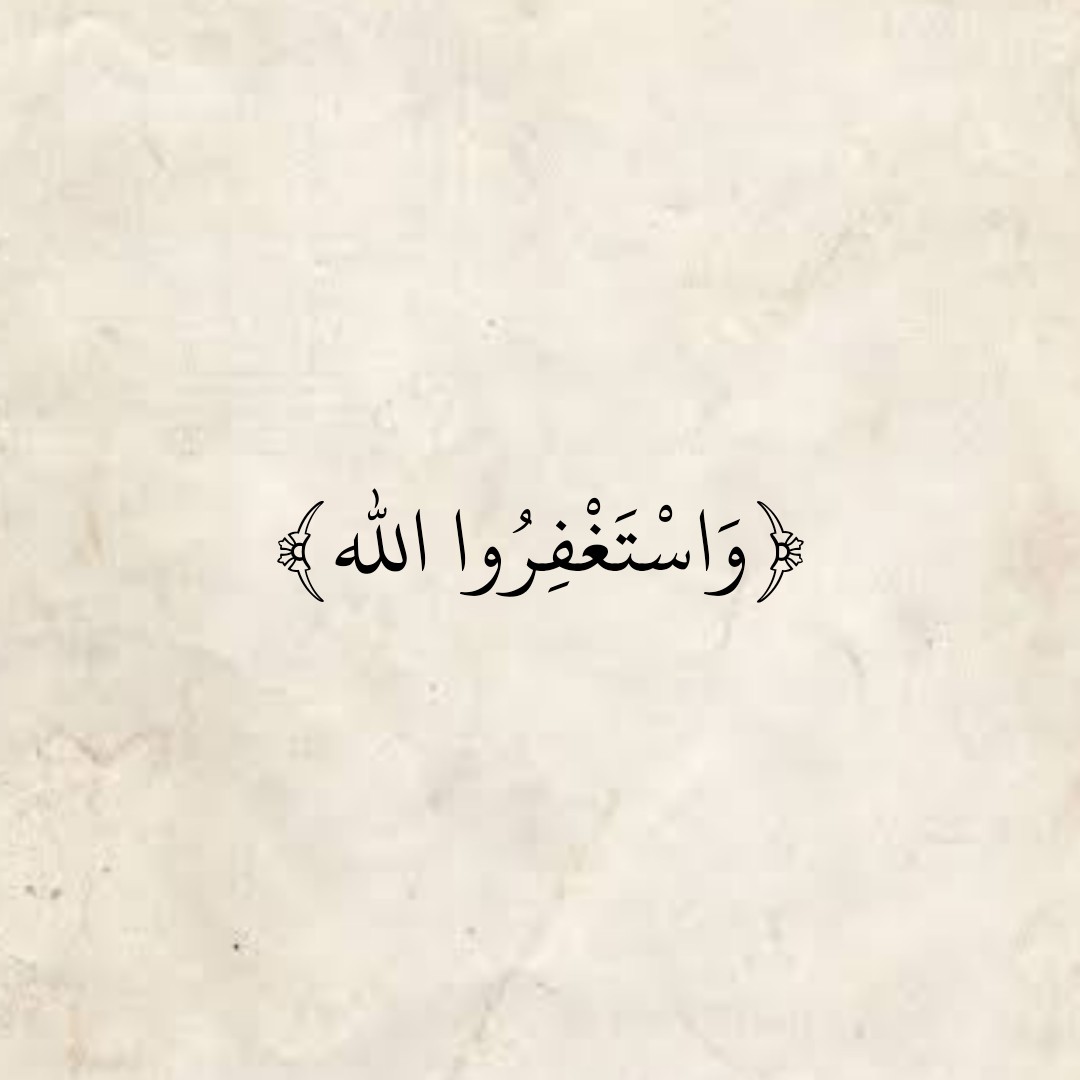 ﴿وَاسْتَغْفِرُوا اللّٰه﴾